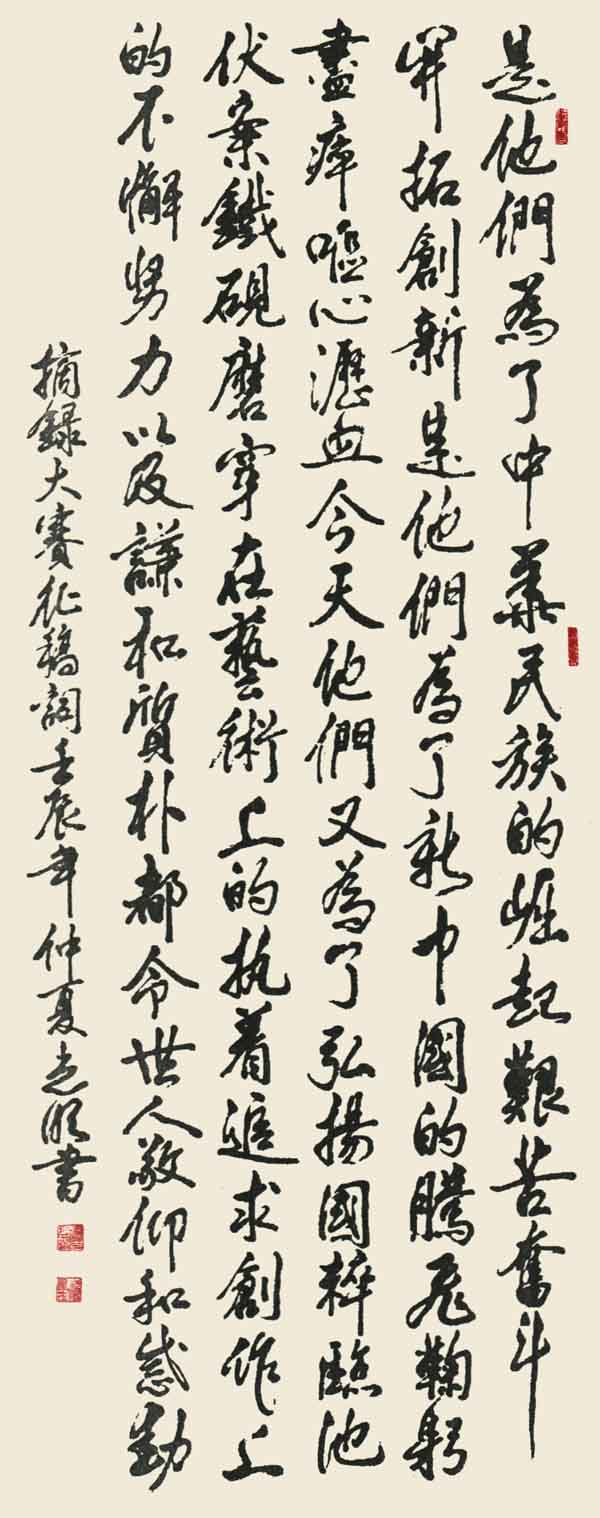 是他們為了中華民族的崛起艱苦奮斗
開拓創新是他們為了新中國的騰飛鞠躬
盡瘁嘔心瀝血今天他們又為了弘揚國粹臨池
伏案鐵硯磨穿在藝術上的执着追求創作上
的不懈努力以及謙和質朴都令世人敬仰和感動
摘録大賽征稿詞壬辰年仲夏志明書